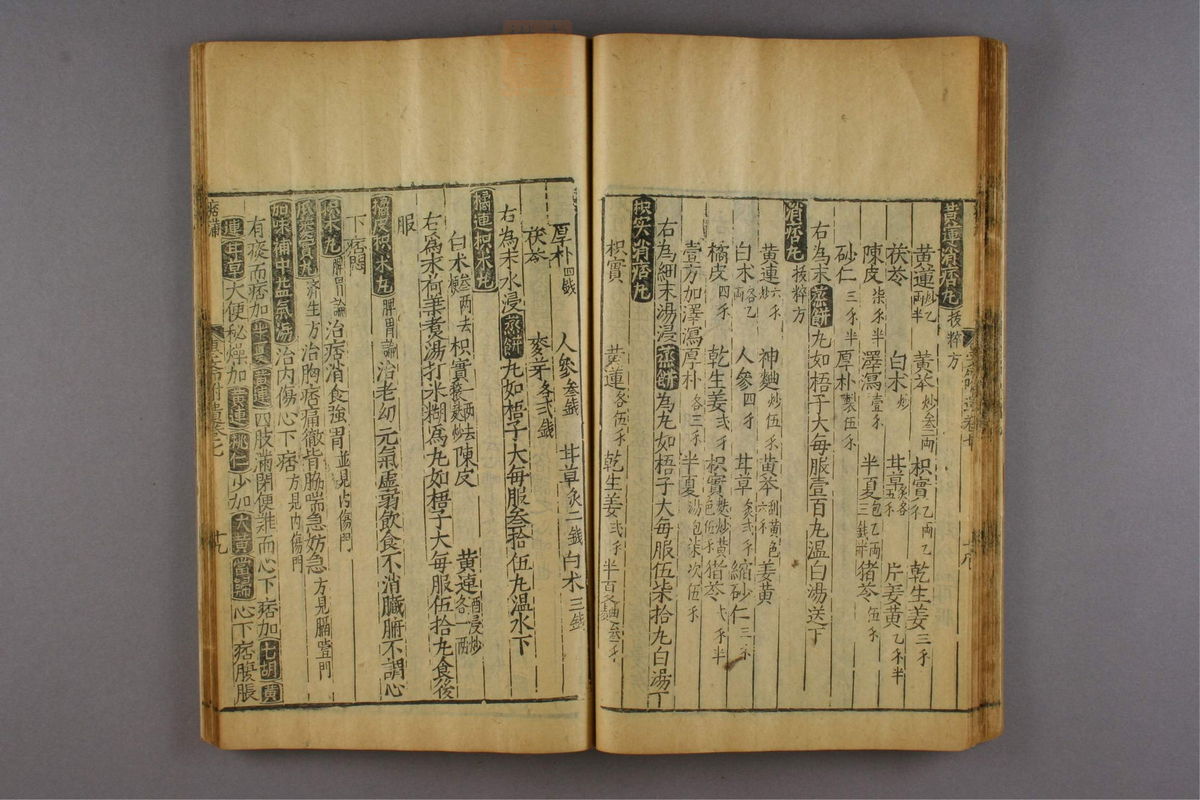 黃連消痞丸 拔粹方
黃連炒乙兩半 黃芩炒叁兩 枳實乙兩乙 乾生姜三
茯苓 白朮炒 甘草炙各五 片姜黃乙半
陳皮柒半 澤瀉壹 半夏泡乙兩三錢 猪苓伍
砂仁三半 厚朴製伍
右為末蒸餅丸如梧子大每服壹百丸溫白湯送下
消痞丸 拔粹方
黃連炒六 神麯炒伍 黃芩刮黃色六 姜黃
白朮各乙兩 人參四 甘草炙弍 縮砂仁三
橘皮四 乾生姜弍 枳實麩炒黃色伍 猪苓弍半
壹方加澤瀉厚朴各三 半夏湯泡柒次伍
右為細末湯浸蒸餅為丸如梧子大每服伍柒拾丸白湯下
枳实消痞丸
枳實 黃連各伍 乾生姜弍 半百麯叁
厚朴四錢 人參叁錢 甘草炙二錢 白朮三錢
茯苓 麥芽各弍錢
右為末水浸蒸餅丸如梧子大每服叁拾伍丸溫水下
橘連枳朮丸
白朮叁兩去梗 枳實一兩去 陳皮 黃連酒浸炒各一兩
右為末荷葉煑湯打米糊爲丸如梧子大每服伍拾丸食後
服
橘皮枳朮丸 脾胃論治老幼元氣虛弱飲食不消臟腑不調心
下痞悶
枳朮丸 脾胃論治痞消食強胃並見内傷門
濟生方治胸痞痛徹背脇喘急妨急方見膈噎門
加味補中益氣湯 治内傷心下痞方見内傷門
有痰而痞加半夏黃連四肢滿閉便難而心下痞加七胡黃
連甘草大便秘燥加黃連桃仁少加大黃當歸心下痞腹脹